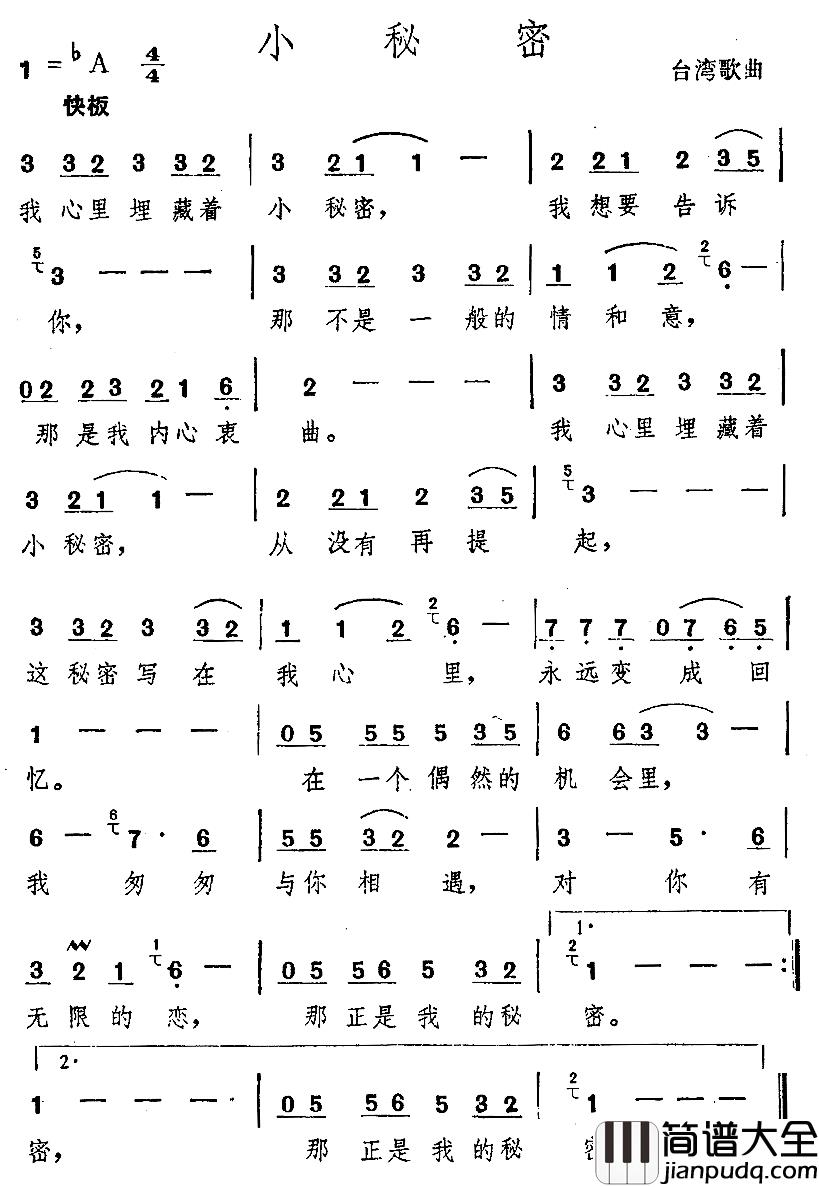 小秘密
1=♭A 4/4
台湾歌曲
快板
3 32 3 32 | 3 21 1 — | 2 221 2 35 |
我心里埋藏着 小秘密, 我想要告诉
5 3 — — — | 3 32 3 32 | 1 1 2 2 6 — |
你, 那不是一般的 情和意,
02 23 21 6 | 2 — — — | 3 32 3 32 |
那是我内心衷 曲。 我心里埋藏着
3 21 1 — | 2 21 2 35 | 5 3 — — — |
小秘密, 从没有再提 起,
3 32 3 32 | 1 1 2 2 6 — | 7 7 7 07 6 5 |
这秘密写在 我心里, 永远变成回
1 — — — | 05 55 5 35 | 6 63 3 — |
忆。 在一个偶然的 机会里,
6 — 6 7· 6 | 55 32 2 — | 3 — 5· 6 |
我匆匆 与你相遇, 对你有
1.
3 2 1 1 6 — | 05 56 5 32 | 2 1 — — — :|
无限的恋, 那正是我的秘 密。
2.
1 — — — | 05 56 5 32 | 2 1 — — — |
密, 那正是我的秘
简谱大全
jianpudq.com